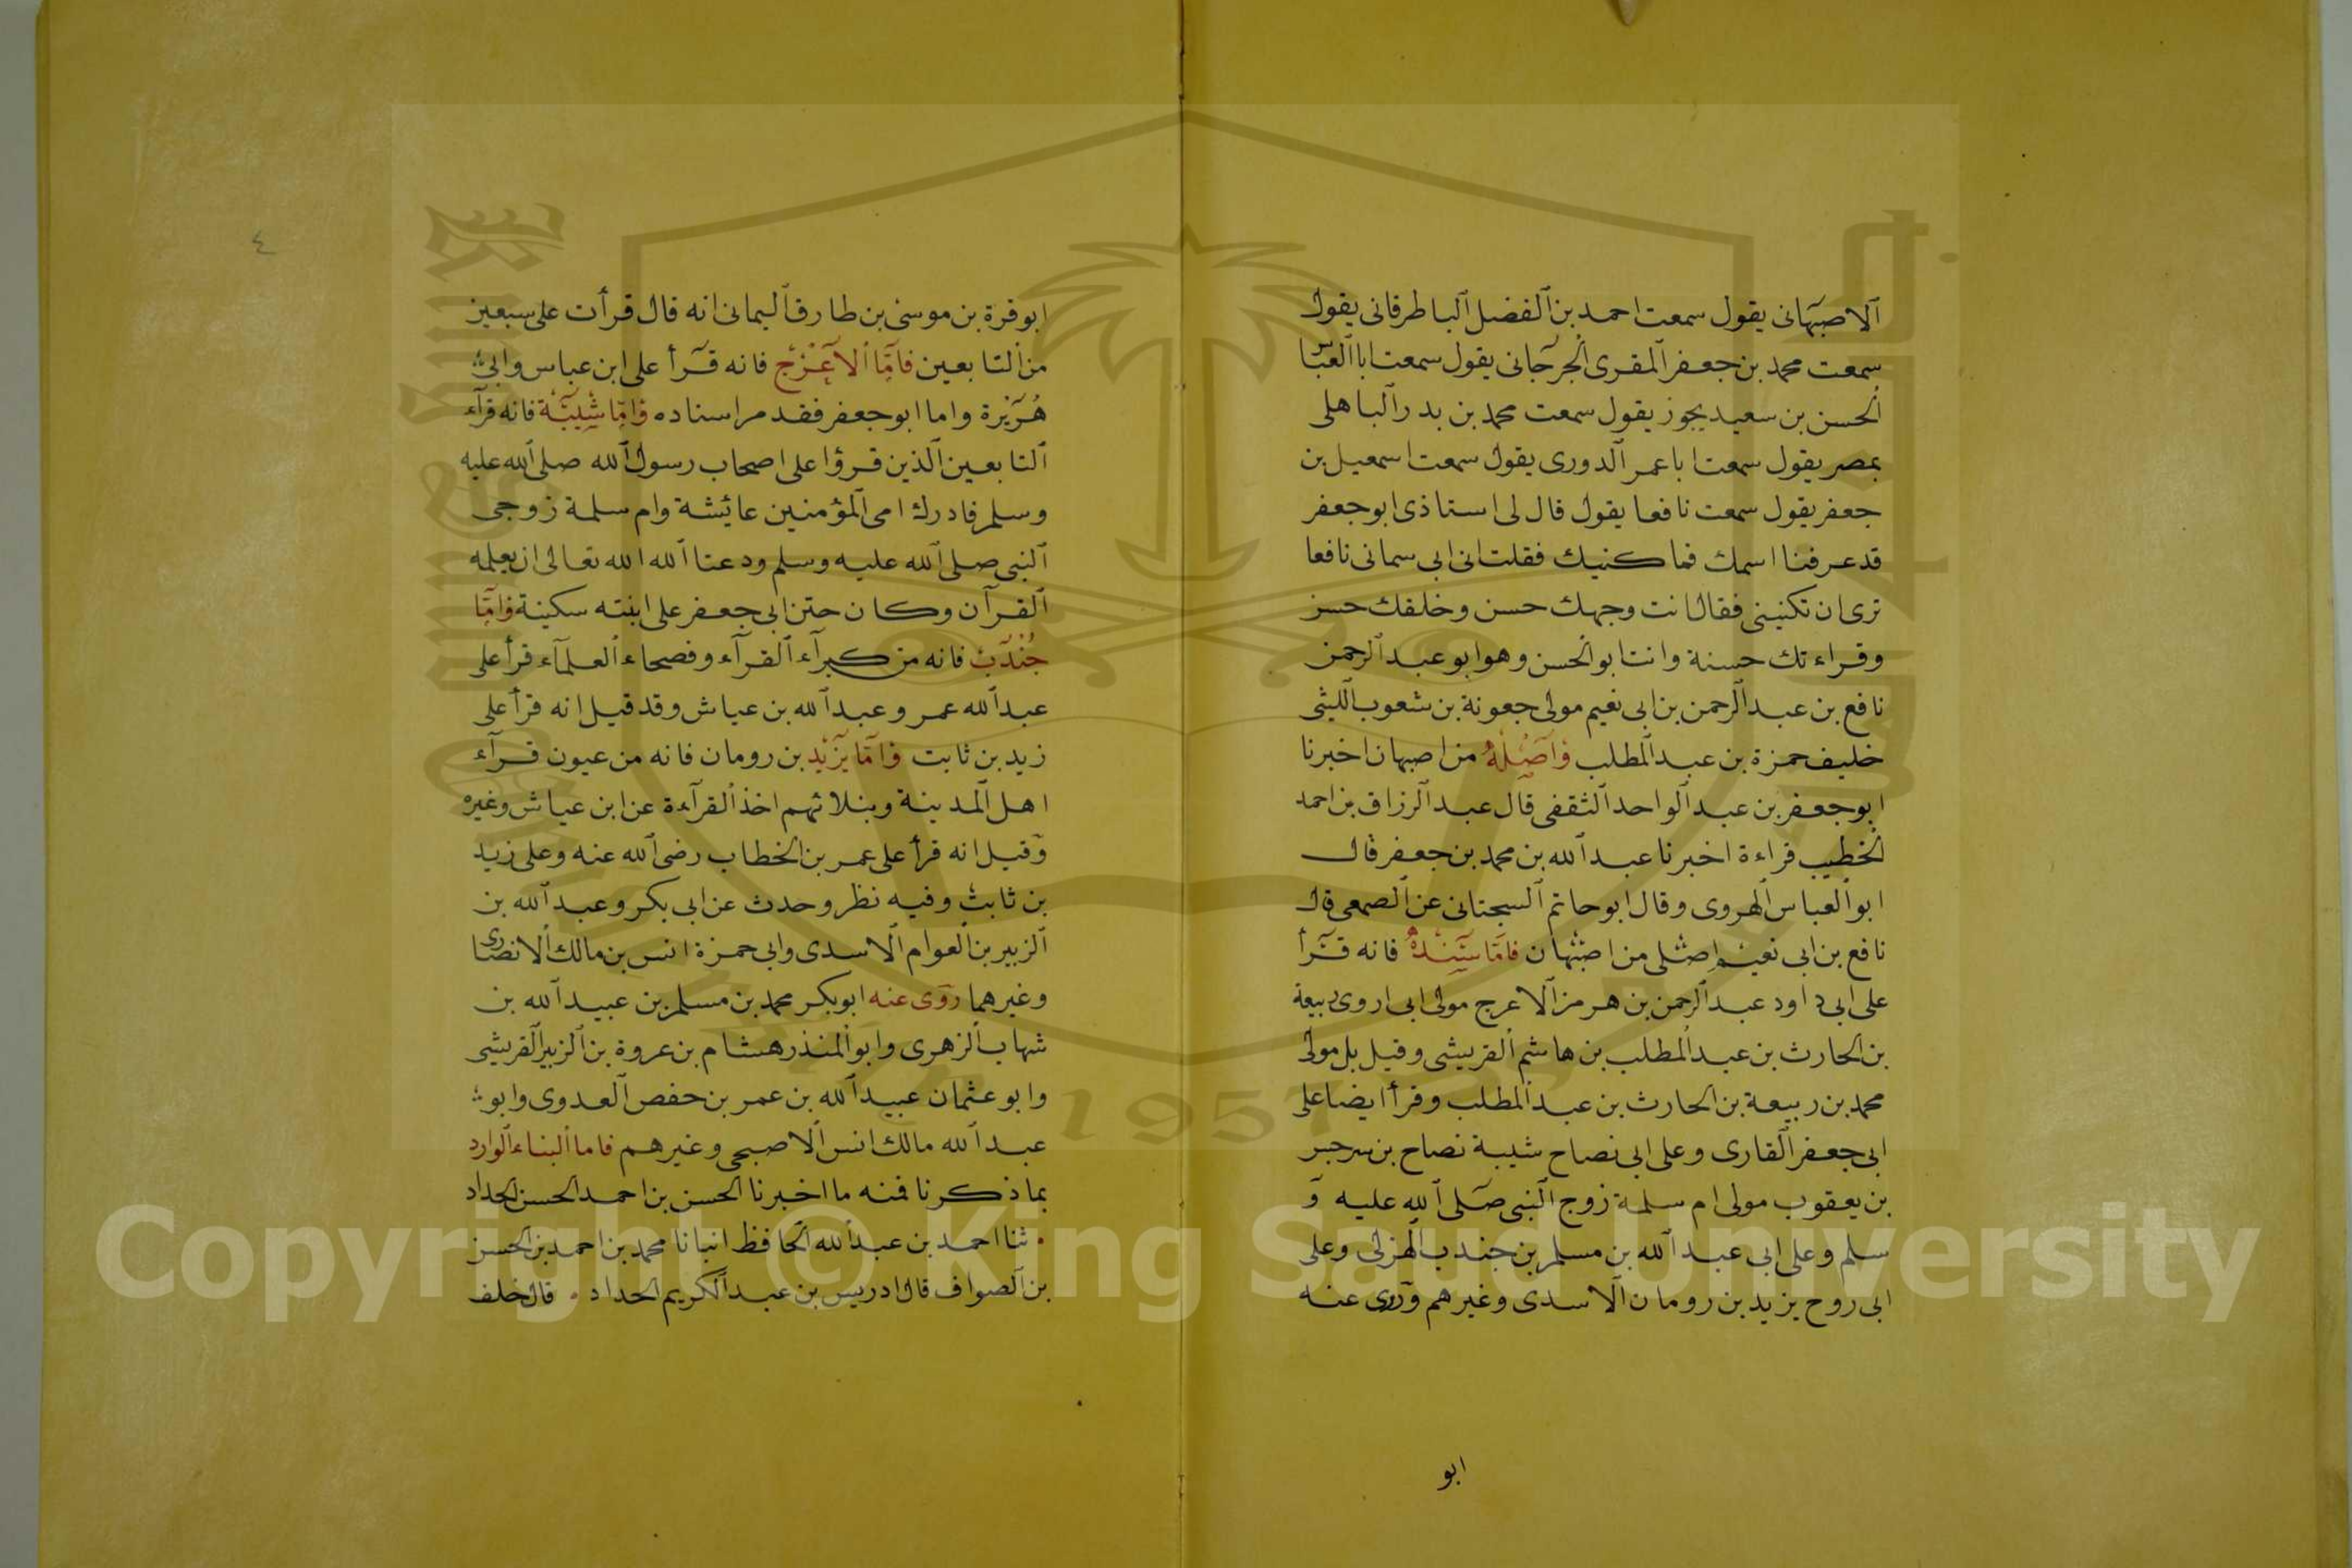 الاصبهانى يقول سمعت احمد بن الفضل الباطرقانى يقول
سمعت محمد بن جعفر المقرى الجرجانى يقول سمعت ابا العباس
الحسن بن سعيد يجوز يقول سمعت محمد بن بدر الباهلى
بمصر يقول سمعت ابا عمر الدورى يقول سمعت اسمعيل بن
جعفر يقول سمعت نافعا يقول قال لى استاذى ابو جعفر
قد عرفنا اسمك فما كنيتك فقلت ان ابى سمانى نافعا
ترى ان تكنينى فقال انت وجهك حسن وخلقك حسن
وقراءتك حسنة وانت ابو الحسن وهو ابو عبد الرحمن
نافع بن عبد الرحمن بن ابى نعيم مولى جعونة بن شعوب الليثى
خليف حمزة بن عبد المطلب واصله من اصبهان اخبرنا
ابو جعفر بن عبد الواحد الثقفى قال عبد الرزاق بن احمد
الخطيب قراءة اخبرنا عبد الله بن محمد بن جعفر قال
ابو العباس الهروى وقال ابو حاتم السجتانى عن الصمعى قال
نافع بن ابى نعيم اصلى من اصبهان فاما سنده فانه قرأ
على ابى داود عبد الرحمن بن هرمز الاعرج مولى ابى اروى ربيعة
بن الحارث بن عبد المطلب بن هاشم القريشى وقيل بل مولى
محمد بن ربيعة بن الحارث بن عبد المطلب وقرأ ايضا على
ابى جعفر القارى وعلى ابى نصاح شيبة نصاح بن سرجبر
بن يعقوب مولى ام سلمة زوج النبى صلى الله عليه و
سلم وعلى ابى عبد الله بن مسلم بن جندب الهزلى وعلى
ابى روح يزيد بن رومان الاسدى وغيرهم وروى عنه
ابو
٤
ابو قرة بن موسى بن طارق اليمانى انه قال قرأت على سبعين
من التابعين فاما الاعرج فانه قرأ على ابن عباس وابى
هريرة واما ابو جعفر فقد مر اسناده واما شيبة فانه قرآء
التابعين الذين قرؤا على اصحاب رسول الله صلى الله عليه
وسلم فادرك امى المؤمنين عائشة وام سلمة زوجى
النبى صلى الله عليه وسلم ودعتا الله الله تعالى ان يعلمه
القرآن وكان ختن ابى جعفر على ابنته سكينة واما
جندب فانه من كبرآء القرآء وفصحاء العلمآء قرأ على
عبد الله عمر وعبد الله بن عياش وقد قيل انه قرأ على
زيد بن ثابت واما يزيد بن رومان فانه من عيون قرآء
اهل المدينة وبنلائهم اخذ القرآءة عن ابن عياش وغيره
وقيل انه قرأ على عمر بن الخطاب رضى الله عنه وعلى زيد
بن ثابت وفيه نظر وحدث عن ابى بكر وعبد الله بن
الزبير بن العوام الاسدى وابى حمزة انس بن مالك الانصارى
وغيرهما روى عنه ابو بكر محمد بن مسلم بن عبيد الله بن
شهاب الزهرى وابو المنذر هشام بن عروة بن الزبير القريشى
وابو عثمان عبيد الله بن عمر بن حفص العدوى وابو
عبد الله مالك انس الاصبحى وغيرهم فاما البناء الوارد
بما ذكرنا فمنه ما اخبرنا الحسن بن احمد الحسن الحداد
ثنا احمد بن عبد الله الحافظ انبانا محمد بن احمد بن الحسن
بن الصواف قال ادريس بن عبد الكريم الحداد قال خلف
Copyright © King Saud University
1957